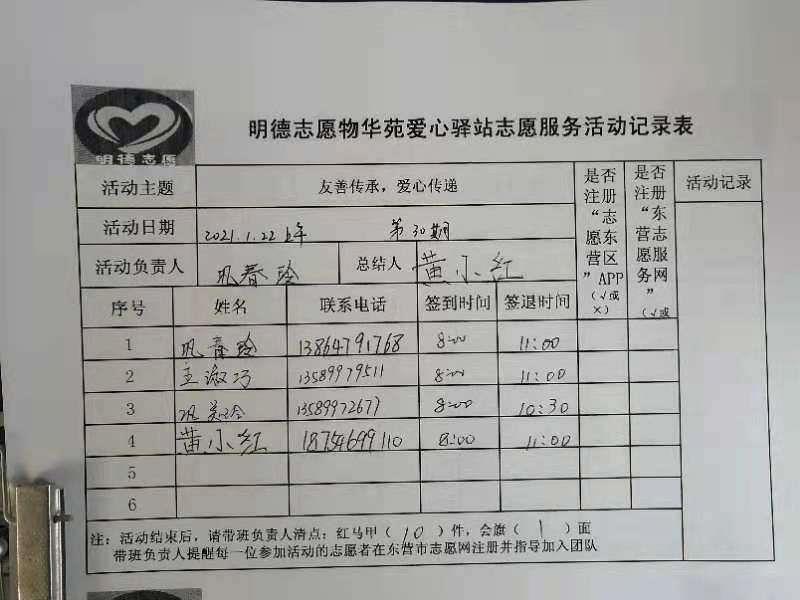 明德志愿
明德志愿物华苑爱心驿站志愿服务活动记录表
活动主题 友善传承，爱心传递 是否注册“志愿东营区”APP（√或×） 是否注册“东营志愿服务网”（√或 活动记录
活动日期 2021.1.22上午 第30期
活动负责人 巩春玲 总结人 黄小红
序号 姓名 联系电话 签到时间 签退时间
1 巩春玲 13864791768 8:00 11:00
2 王淑巧 13589979511 8:00 11:00
3 巩 玲 13589972677 8:00 10:30
4 黄小红 18754699110 8:00 11:00
5
6
注：活动结束后，请带班负责人清点：红马甲（10）件，会旗（1）面
带班负责人提醒每一位参加活动的志愿者在东营市志愿网注册并指导加入团队